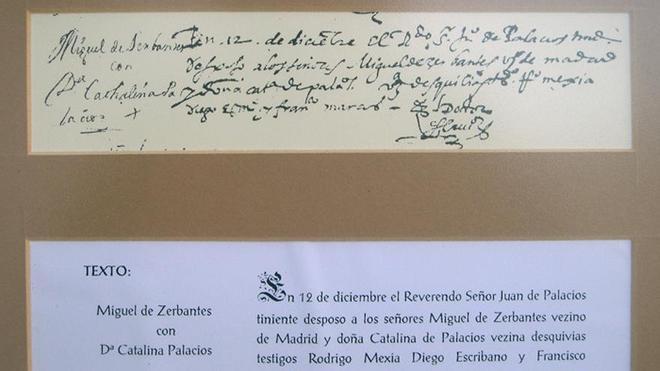 Miguel de Serbantes
con
Dª Cathalina Pa
lacios
En 12 de diciembre el Rdo S. Juº de Palacios
a los señores Miguel de zerbantes vº de madrid
y doña catª de palacº vª desquibias tº Rº mexia
Diego escriº y franº marcos
El Doctor
TEXTO:
Miguel de Zerbantes
con
Dª Catalina Palacios
En 12 de diciembre el Reverendo Señor Juan de Palacios
tiniente desposo a los señores Miguel de Zerbantes vezino
de Madrid y doña Catalina de Palacios vezina desquivias
testigos Rodrigo Mexia Diego Escribano y Francisco